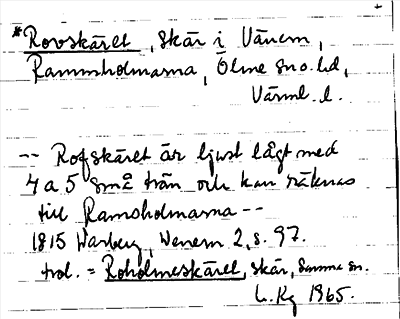 *Rovskäret, skär i Vänern,
Rammsholmarna, Ölme sn o. hd,
Värml. l.
-- Rofskäret är ljust lågt med
4 a 5 små trän och kan räknas
till Ramsholmarna --
1815 Warberg, Wenern 2, s. 97.
trol. = Roholmeskäret, skär, samma sn.
L. Kg 1965.